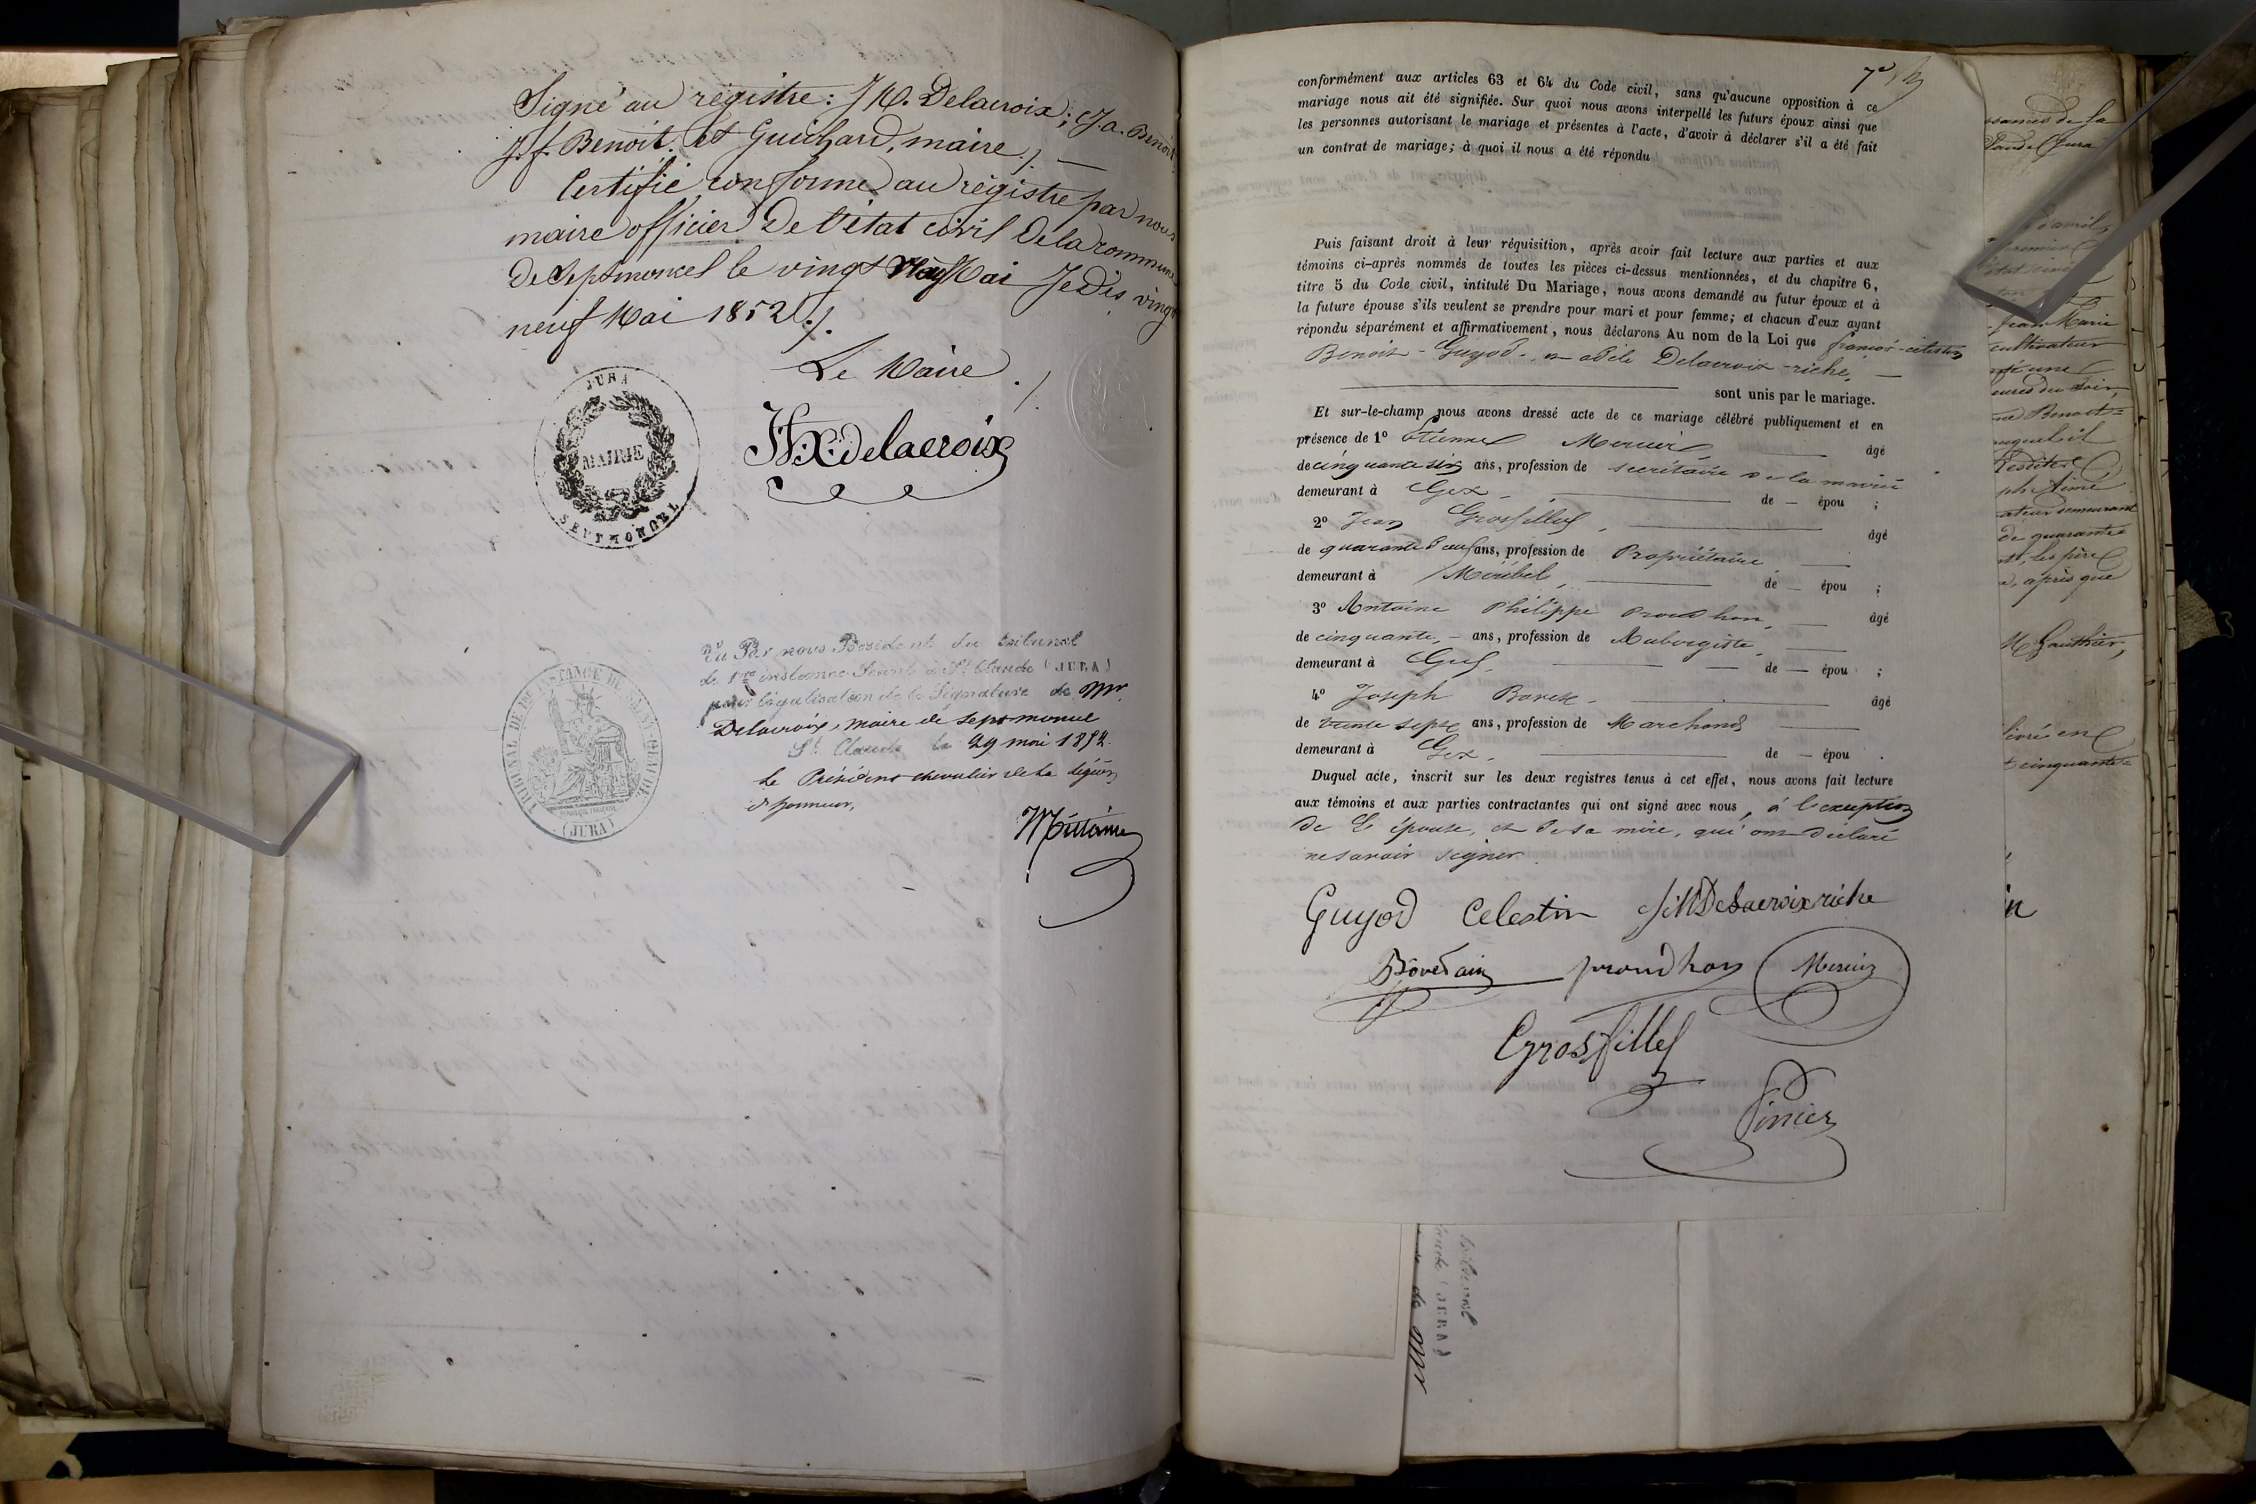 Signé au régistre: J M. Delacroix; J. a. Benoit
J. f. Benoit. et Guichard, maire ./. —
Certifié conforme au régistre par nous
maire officier De l'état civil Dela commune
De Septmoncel le vingt Mai Je Dis vingt
neuf Mai 1852 ./.
Le Maire ./.
delacroix
JURA
MAIRIE
SEPTMONCEL
Vu Par nous Président du tribunal
de 1re instance Séant à St Claude (JURA)
pour légalisation de la Signature de Mr
Delacroix, maire de Septmoncel
St. Claude le 29 mai 1852.
Le Président chevalier de la légion
d'honneur,
TRIBUNAL DE 1RE INSTANCE DE SAINT-CLAUDE
(JURA)
conformément aux articles 63 et 64 du Code civil, sans qu'aucune opposition à ce
mariage nous ait été signifiée. Sur quoi nous avons interpellé les futurs époux ainsi que
les personnes autorisant le mariage et présentes à l'acte, d'avoir à déclarer s'il a été fait
un contrat de mariage; à quoi il nous a été répondu
Puis faisant droit à leur réquisition, après avoir fait lecture aux parties et aux
témoins ci-après nommés de toutes les pièces ci-dessus mentionnées, et du chapitre 6,
titre 5 du Code civil, intitulé Du Mariage, nous avons demandé au futur époux et à
la future épouse s'ils veulent se prendre pour mari et pour femme; et chacun d'eux ayant
répondu séparément et affirmativement, nous déclarons Au nom de la Loi que françois-célestin
Benoit-Guyod. et adèle Delacroix-riche, —
sont unis par le mariage.
Et sur-le-champ nous avons dressé acte de ce mariage célébré publiquement et en
présence de 1º Etienne Mercier âgé
de cinquante six ans, profession de secrétaire de la mairie
demeurant à Gex de — épou ;
2º Jean Grosfilley, âgé
de quarante neuf ans, profession de Propriétaire
demeurant à Miribel, de — épou ;
3º Antoine Philippe Proudhon, âgé
de cinquante, — ans, profession de Aubergiste,
demeurant à Gex, de — épou ;
4º Joseph âgé
de trente sept ans, profession de Marchand
demeurant à Gex, de — épou .
Duquel acte, inscrit sur les deux registres tenus à cet effet, nous avons fait lecture
aux témoins et aux parties contractantes qui ont signé avec nous, à l'exception
de l'épouse, et de sa mère, qui ont déclaré
ne savoir signer.
Guyod Celestin Delacroixriche
proudhon Mercier
Grosfilley
Jura
Marie
cultivateur
une
Benoit=
ateur demeurant
de quarante
les père
, après que
M Gauthier,
livré en
cinquante=
tribunal
(JURA)
de Mr